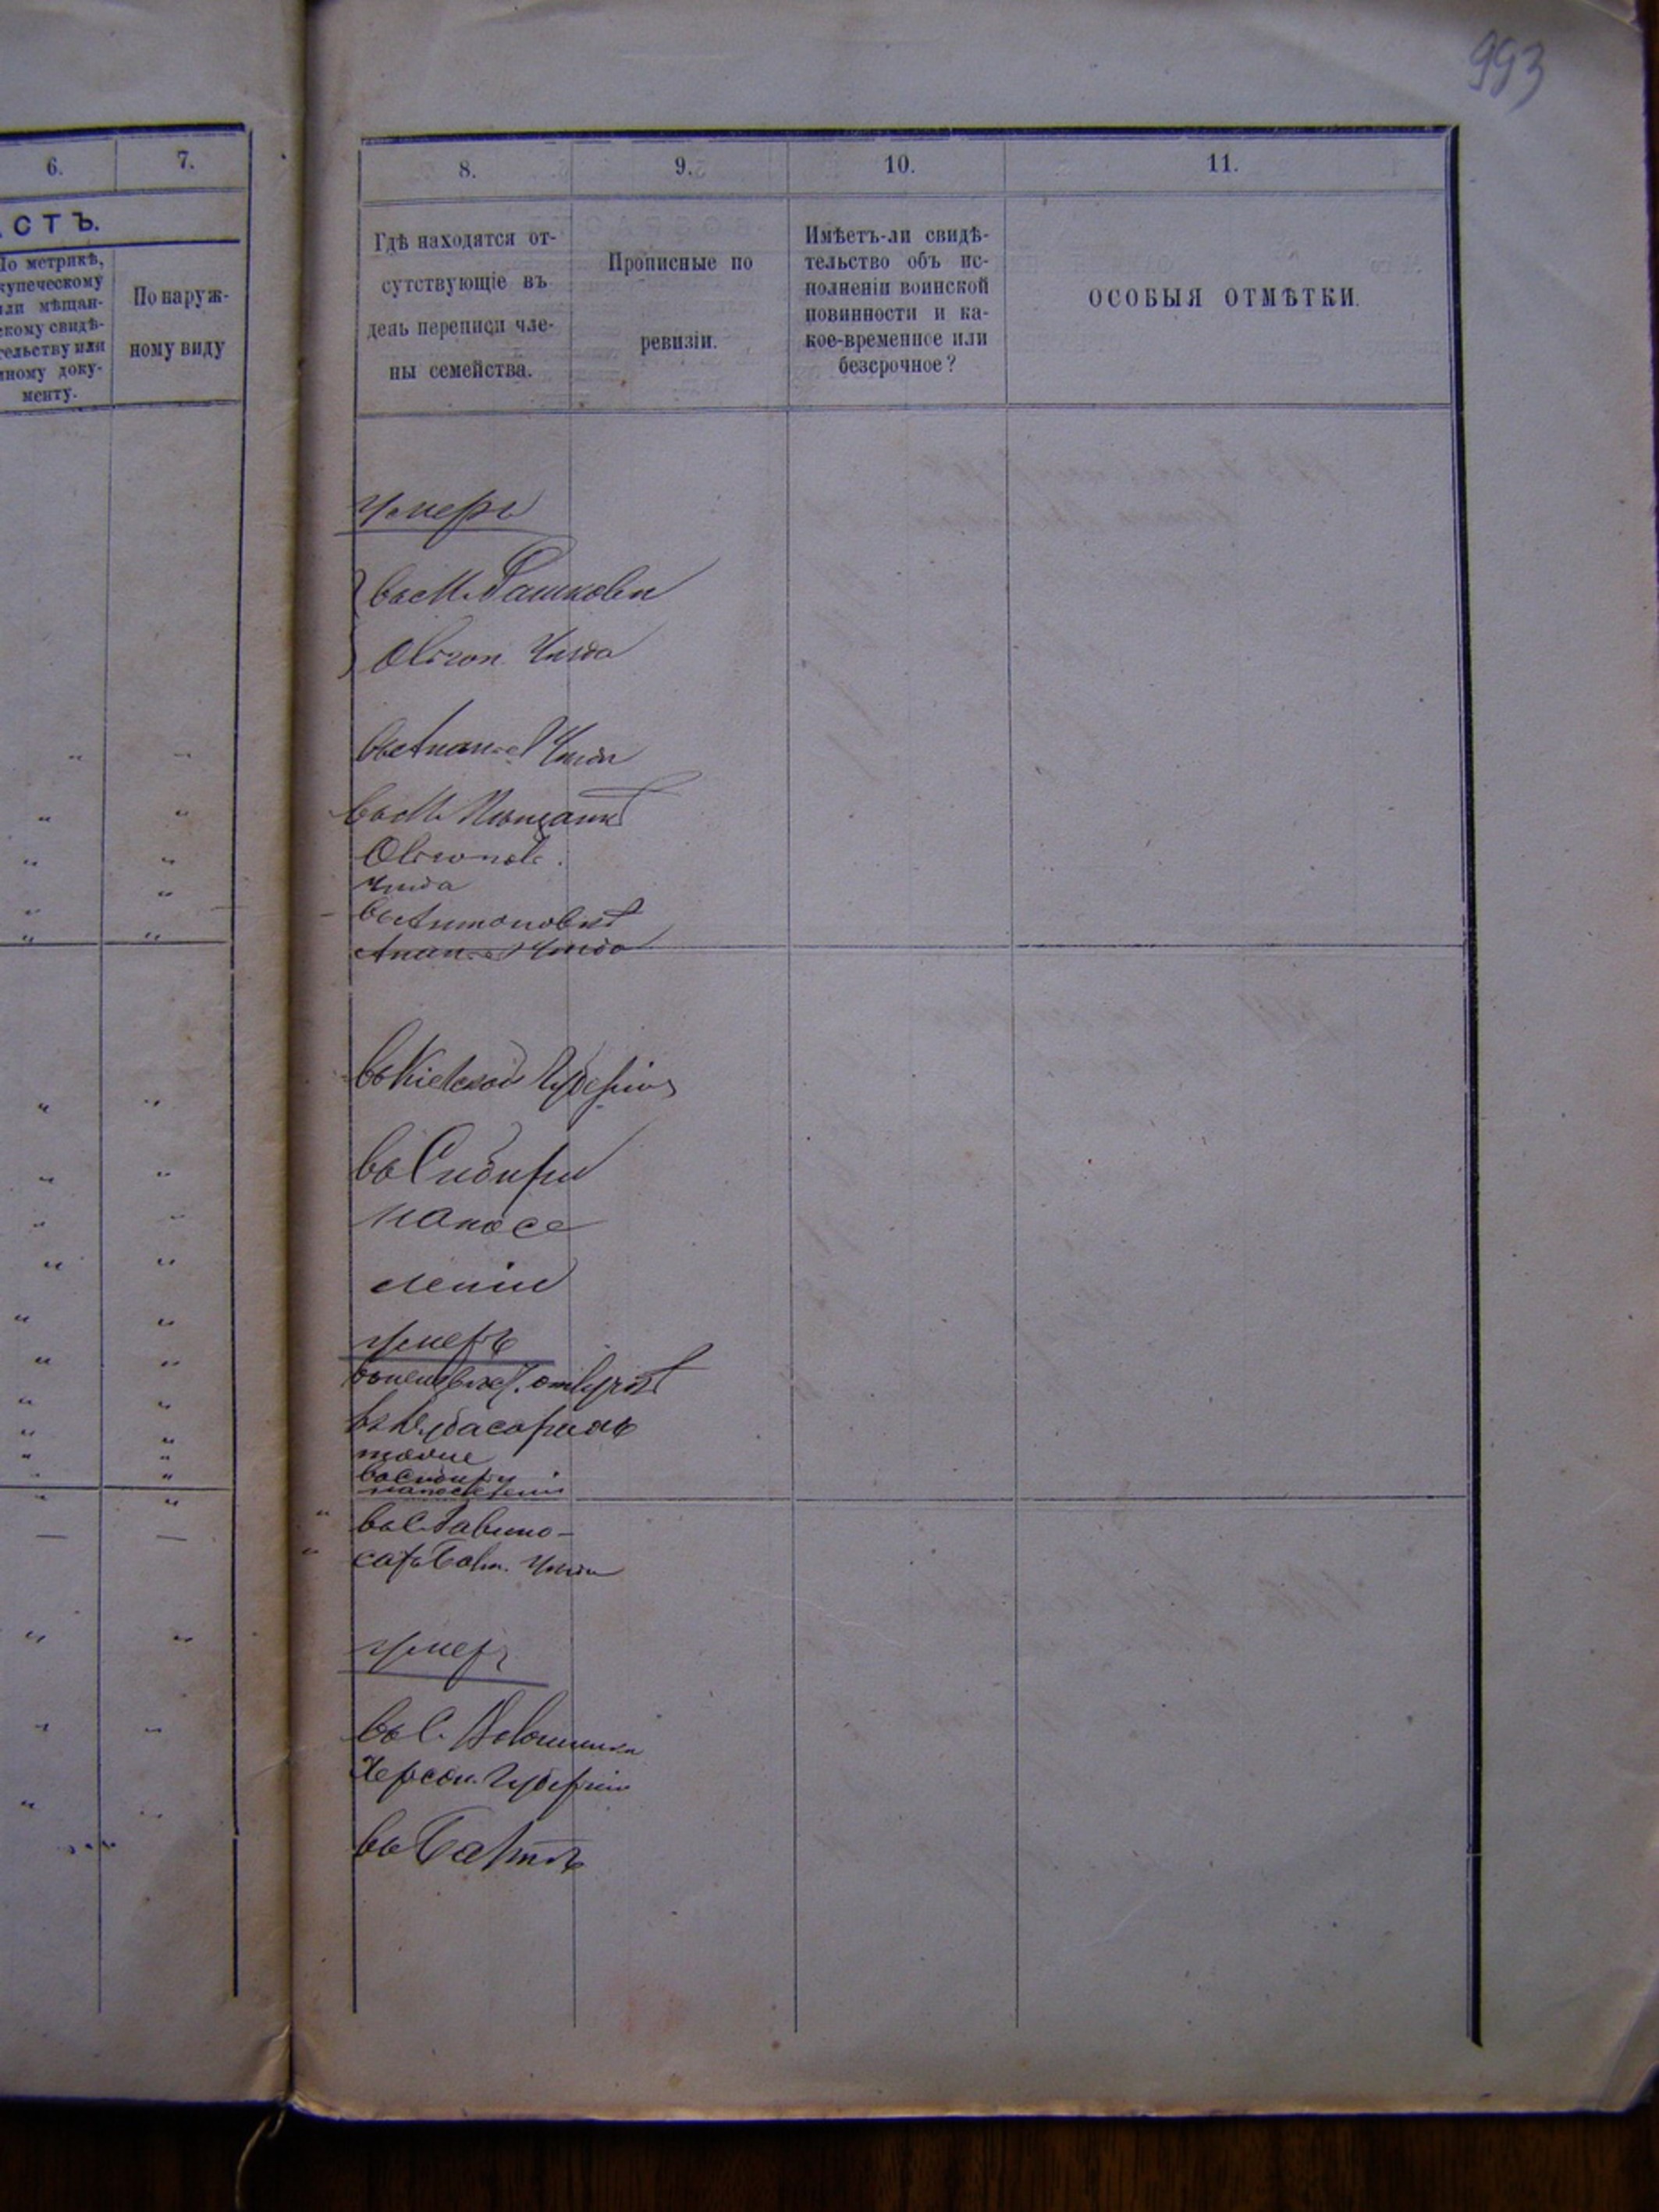 993
6.
7.
СТЪ.
По метрикѣ,
купеческому
или мѣщан-
скому свидѣ-
тельству или
иному доку-
менту.
По наруж-
ному виду
8.
9.
10.
11.
Гдѣ находятся от-
сутствующіе въ
день переписи чле-
ны семейства.
Прописные по
ревизіи.
Имѣетъ-ли свидѣ-
тельство объ ис-
полненіи воинской
повинности и ка-
кое-временное или
безсрочное?
ОСОБЫЯ ОТМѢТКИ.
умеръ
въ М. Рашкови
Уѣзда
Уѣзда
въ М.
Уѣзда
въ Антоновкѣ
Анан. Уѣзда
въ Кіевской Губерніи
въ Сибири
на посе
леніи
умеръ
въ Дубасарахъ
тоже
въ Сибири
на поселеніи
въ С.
Уѣзда
умеръ
въ С.
Херсон. Губерніи
въ Балтѣ